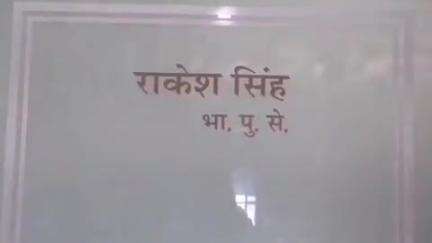 राकेश सिंह
भा. पु. से.